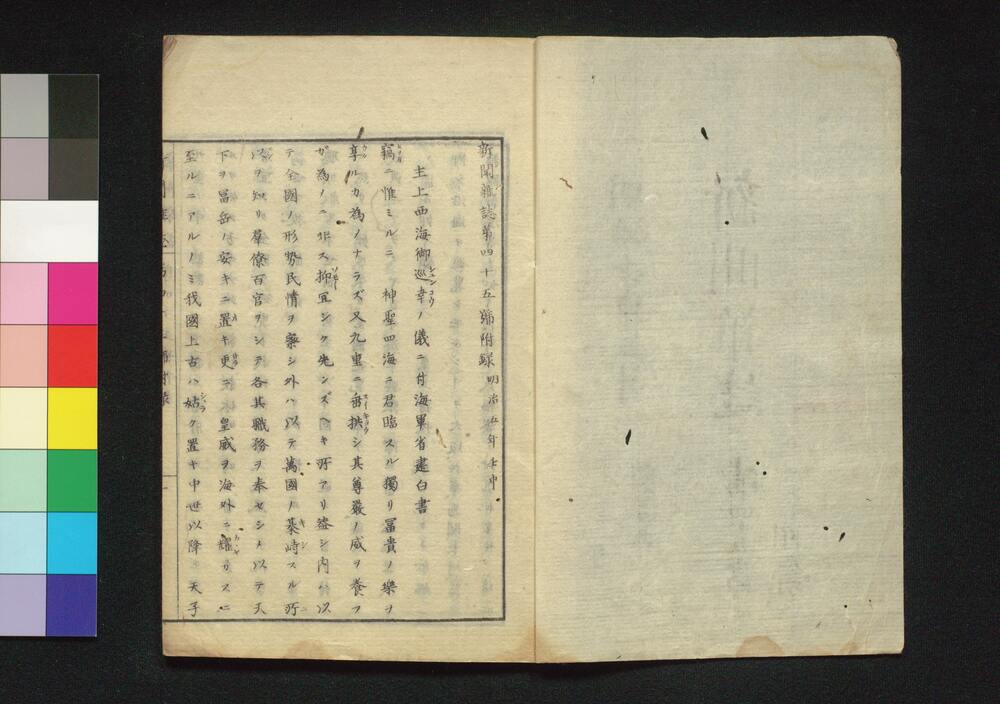 新聞雜誌第四十五號附録 明治五年壬申
主上西海御巡幸ノ儀ニ付海軍省建白書
竊ニ惟ミルニ神聖四海ニ君臨スル獨リ冨貴ノ樂ヲ
享ルカ為ノナラズ又九重ニ垂拱シ其尊嚴ノ威ヲ養フ
ガ為ノミニ非ス抑冝シク先ンズヘキ所アリ盖シ内ハ以
テ全國ノ形勢民情ヲ察シ外ハ以テ萬國ノ棊峙スル所
以ヲ知リ羣僚百官ヲシテ各其職務ヲ奉セシメ以テ天
下ヲ冨岳ノ安キニ置キ更ニ皇威ヲ海外ニ耀カスニ
至ルニアルノミ我國上古ハ姑ク置キ中世以降天子